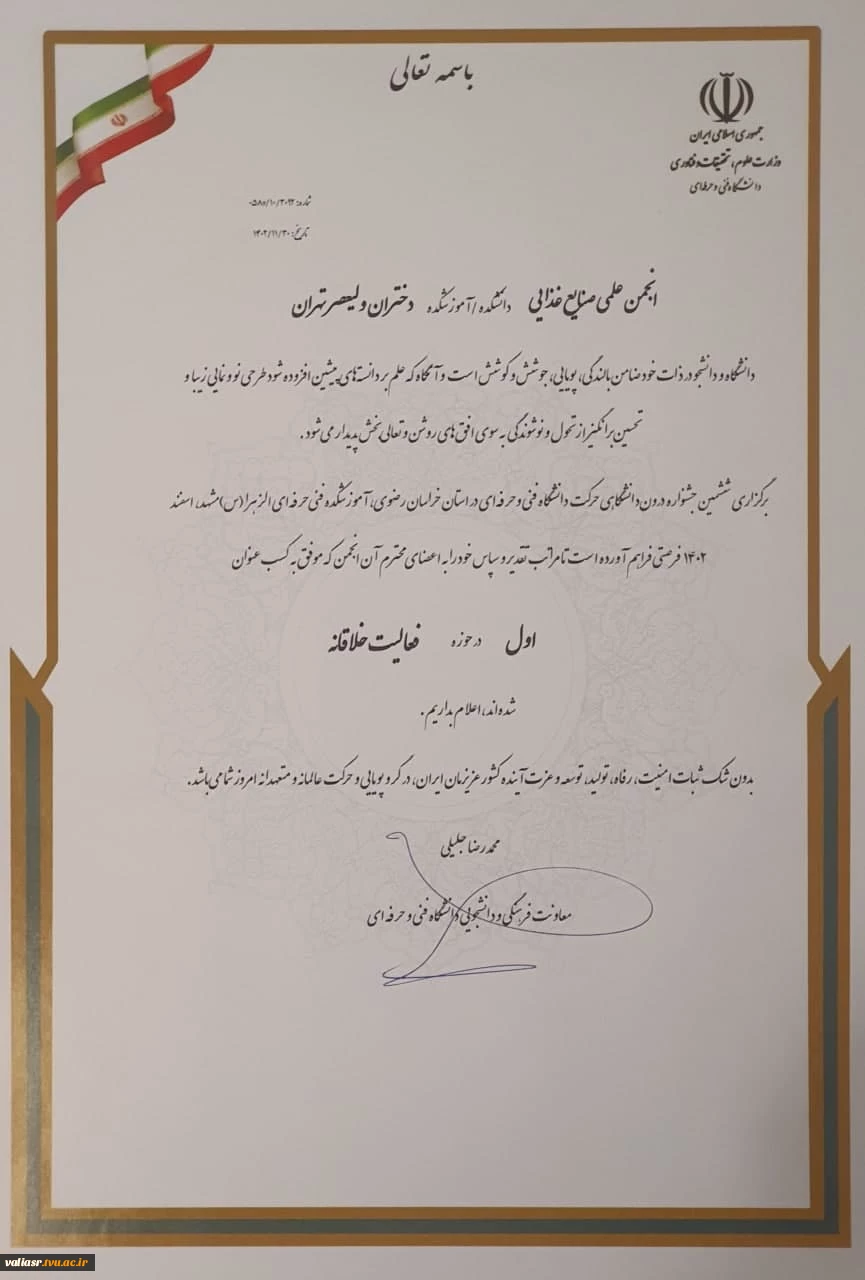 باسمه تعالی
جمهوری اسلامی ایران
وزارت علوم، تحقیقات و فناوری
دانشگاه فنی و حرفه‌ای
شماره:
تاریخ: ۱۴۰۲/۱۱/۳۰
انجمن علمی صنایع غذایی دانشکده /آموزشکده دختران ولیعصر تهران
دانشگاه و دانشجو در ذات خود ضامن بالندگی، پویایی، جوشش و کوشش است و آنگاه که علم بر دانسته‌های پیشین افزوده شود طرحی نو و نمایی زیبا و
تحسین برانگیز از تحول و نوشوندگی به سوی افق‌های روشن و تعالی بخش پدیدار می شود.
برگزاری ششمین جشنواره درون دانشگاهی حرکت دانشگاه فنی و حرفه ای در استان خراسان رضوی، آموزشکده فنی حرفه ای الزهرا (س) مشهد، اسفند
۱۴۰۲ فرصتی فراهم آورده است تا مراتب تقدیر و سپاس خود را به اعضای محترم آن انجمن که موفق به کسب عنوان
اول در حوزه فعالیت خلاقانه
شده اند، اعلام بداریم.
بدون شک ثبات امنیت، رفاه، تولید، توسعه و عزت آینده کشور عزیزمان ایران، در گرو پویایی و حرکت عالمانه و متعهدانه امروز شما می باشد.
محمدرضا جلیلی
معاونت فرهنگی و دانشجویی دانشگاه فنی و حرفه ای
valiasr.tvu.ac.ir